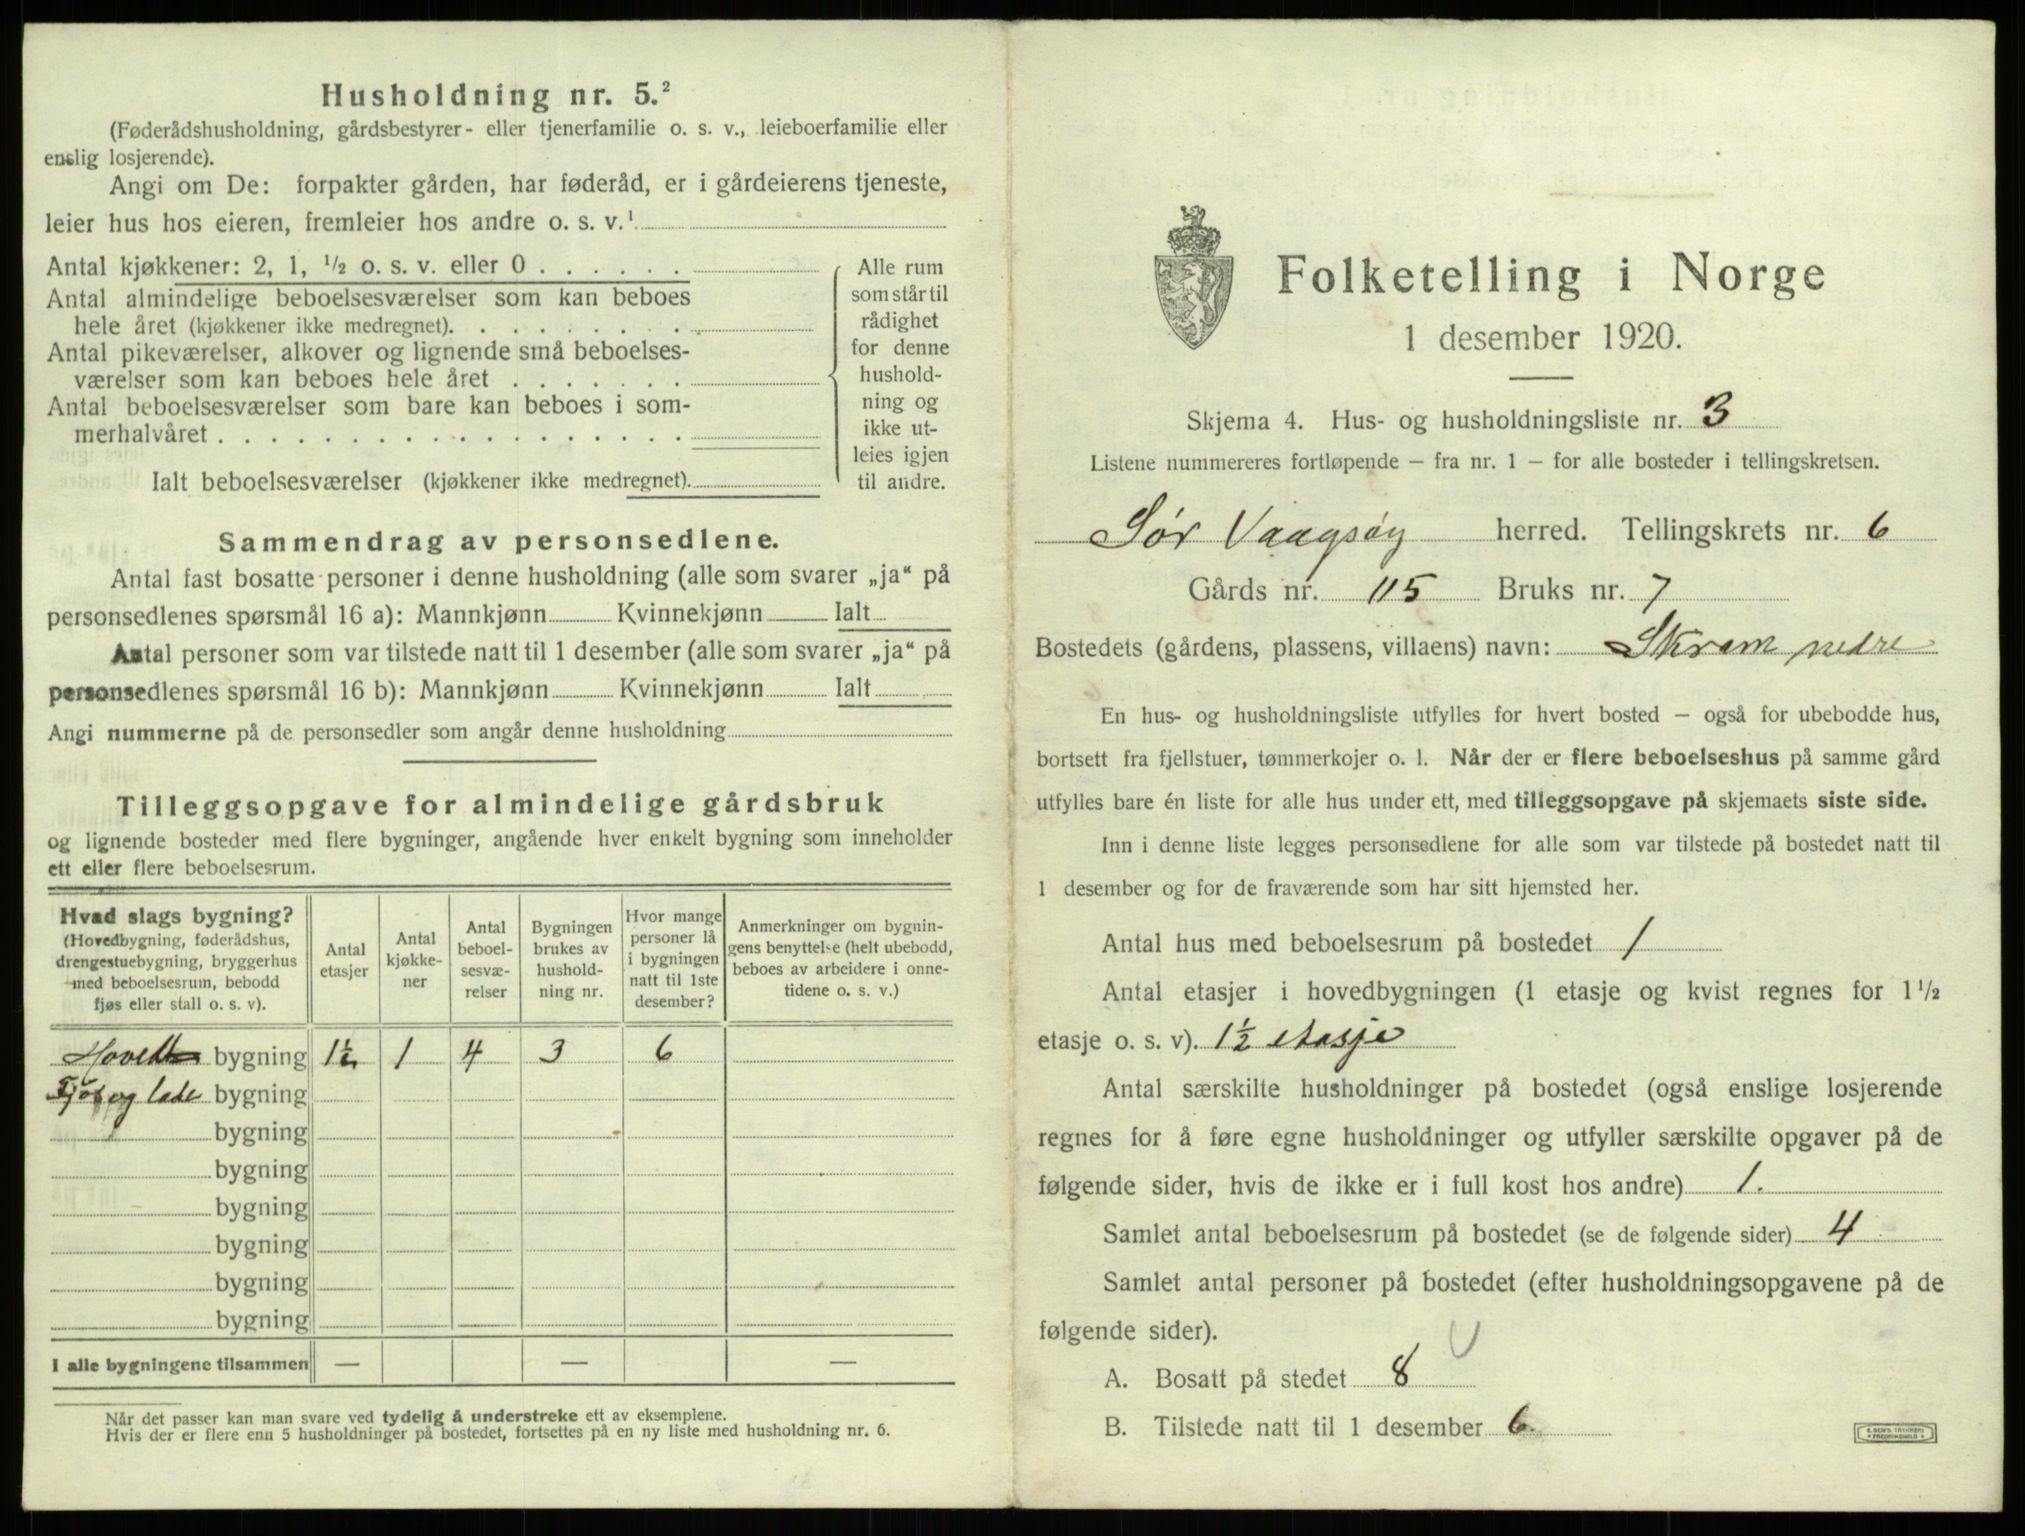 Husholdning nr. 5.²
(Føderådshusholdning, gårdsbestyrer- eller tjenerfamilie o. s. v., leieboerfamilie eller
enslig losjerende).
Angi om De: forpakter gården, har føderåd, er i gårdeierens tjeneste,
leier hus hos eieren, fremleier hos andre o. s. v.¹
Antal kjøkkener: 2, 1, ½ o. s. v. eller 0 . . . . . .
Antal almindelige beboelsesværelser som kan beboes
hele året (kjøkkener ikke medregnet). . . . . . . . . .
Antal pikeværelser, alkover og lignende små beboelses-
værelser som kan beboes hele året . . . . . . .
Antal beboelsesværelser som bare kan beboes i som-
merhalvåret . . . . . . . . . . . . . . . . . .
Ialt beboelsesværelser (kjøkkener ikke medregnet).
Alle rum
som står til
rådighet
for denne
hushold-
ning og
ikke ut-
leies igjen
til andre.
Sammendrag av personsedlene.
Antal fast bosatte personer i denne husholdning (alle som svarer „ja“ på
personsedlenes spørsmål 16 a): Mannkjønn Kvinnekjønn Ialt
Antal personer som var tilstede natt til 1 desember (alle som svarer „ja“ på
personsedlenes spørsmål 16 b): Mannkjønn Kvinnekjønn Ialt
Angi nummerne på de personsedler som angår denne husholdning
Tilleggsopgave for almindelige gårdsbruk
og lignende bosteder med flere bygninger, angående hver enkelt bygning som inneholder
ett eller flere beboelsesrum.
Hvad slags bygning?
(Hovedbygning, føderådshus,
drengestuebygning, bryggerhus
med beboelsesrum, bebodd
fjøs eller stall o. s. v).
Antal
etasjer
Antal
kjøkke-
ner
Antal
beboel-
sesvæ-
relser
Bygningen
brukes av
hushold-
ning nr.
Hvor mange
personer lå
i bygningen
natt til 1ste
desember?
Anmerkninger om bygnin-
gens benyttelse (helt ubebodd,
beboes av arbeidere i onne-
tidene o. s. v.)
Hoved bygning 1½ 1 4 3 6
Fjøs og lade bygning
bygning
bygning
bygning
bygning
bygning
bygning
I alle bygningene tilsammen — — —
Når det passer kan man svare ved tydelig å understreke ett av eksemplene.
Hvis der er flere enn 5 husholdninger på bostedet, fortsettes på en ny liste med husholdning nr. 6.
Folketelling i Norge
1 desember 1920.
Skjema 4. Hus- og husholdningsliste nr. 3
Listene nummereres fortløpende — fra nr. 1 — for alle bosteder i tellingskretsen.
Sør Vaagsøy herred. Tellingskrets nr. 6
Gårds nr. 115 Bruks nr. 7
Bostedets (gårdens, plassens, villaens) navn: Skram nedre
En hus- og husholdningsliste utfylles for hvert bosted — også for ubebodde hus,
bortsett fra fjellstuer, tømmerkojer o. l. Når der er flere beboelseshus på samme gård
utfylles bare én liste for alle hus under ett, med tilleggsopgave på skjemaets siste side.
Inn i denne liste legges personsedlene for alle som var tilstede på bostedet natt til
1 desember og for de fraværende som har sitt hjemsted her.
Antal hus med beboelsesrum på bostedet 1
Antal etasjer i hovedbygningen (1 etasje og kvist regnes for 1½
etasje o. s. v). 1½ etasje
Antal særskilte husholdninger på bostedet (også enslige losjerende
regnes for å føre egne husholdninger og utfyller særskilte opgaver på de
følgende sider, hvis de ikke er i full kost hos andre) 1.
Samlet antal beboelsesrum på bostedet (se de følgende sider) 4
Samlet antal personer på bostedet (efter husholdningsopgavene på de
følgende sider).
A. Bosatt på stedet 8
B. Tilstede natt til 1 desember 6.